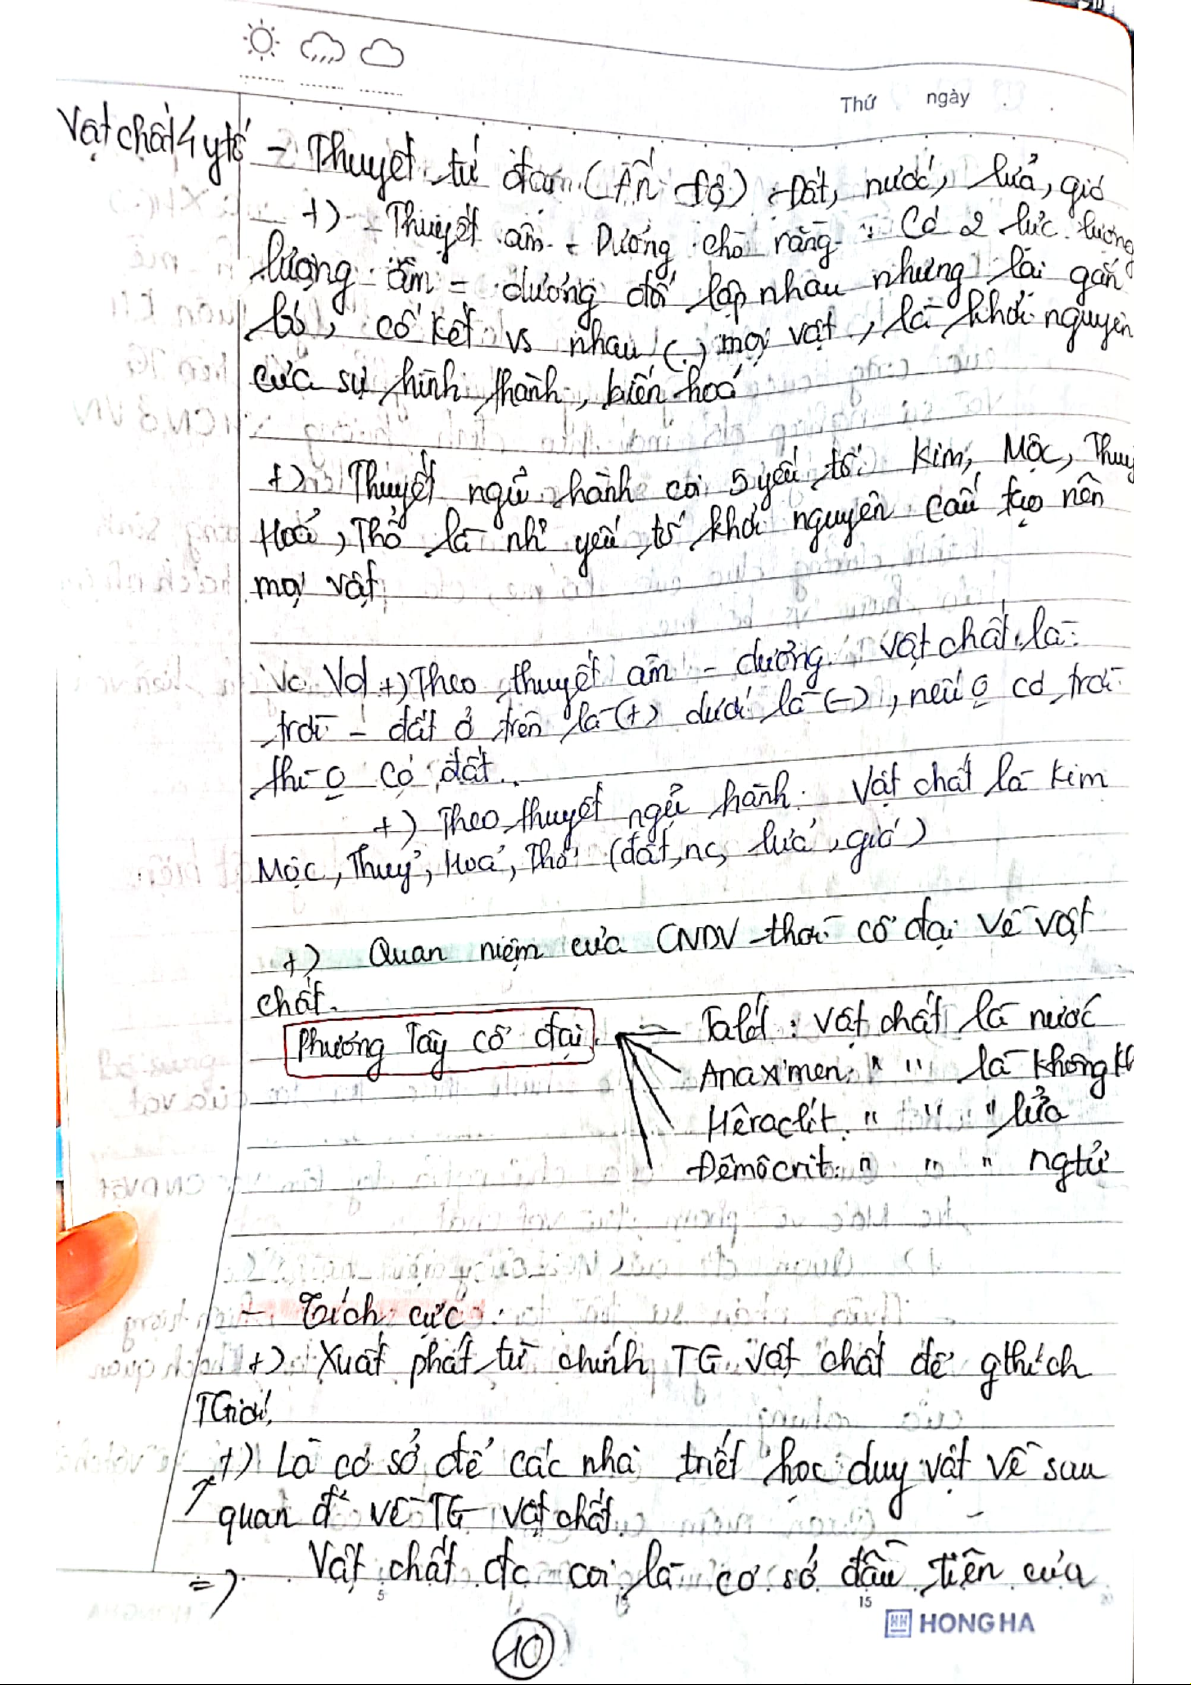 Thứ ngày
Vật chất 4 ytố - Thuyết tứ đại (Ấn Độ) : Đất, nước, lửa, gió
+) - Thuyết âm - Dương cho rằng : Có 2 lực lượng
lượng âm - dương đối lập nhau nhưng lại gắn
bó, cố kết vs nhau (.) mọi vật, là khởi nguyên
của sự hình thành, biến hoá
+) Thuyết ngũ hành coi 5 yếu tố: Kim, Mộc, Thuỷ
Hoả, Thổ là nh~ yếu tố khởi nguyên cấu tạo nên
mọi vật
Vd +) Theo thuyết âm - dương vật chất là:
trời - đất ở trên là (+) dưới là (-), nếu o có trời
thì o có đất.
+) Theo thuyết ngũ hành: Vật chất là Kim
Mộc, Thuỷ, Hoả, Thổ (đất, nc, lửa, gió)
+) Quan niệm của CNDV thời cổ đại về vật
chất.
Phương Tây cổ đại
- Talét : vật chất là nước
Anaximen: " " là không kh
Hêraclit: " " " lửa
Đêmôcrit: " " " ngtử
- Tích cực :
+) Xuất phát từ chính TG vật chất để gthích
TGiới
+) Là cơ sở để các nhà triết học duy vật về sau
quan đ' về TG vật chất
=) Vật chất đc coi là cơ sở đầu tiên của
5 15
HH HONG HA
10